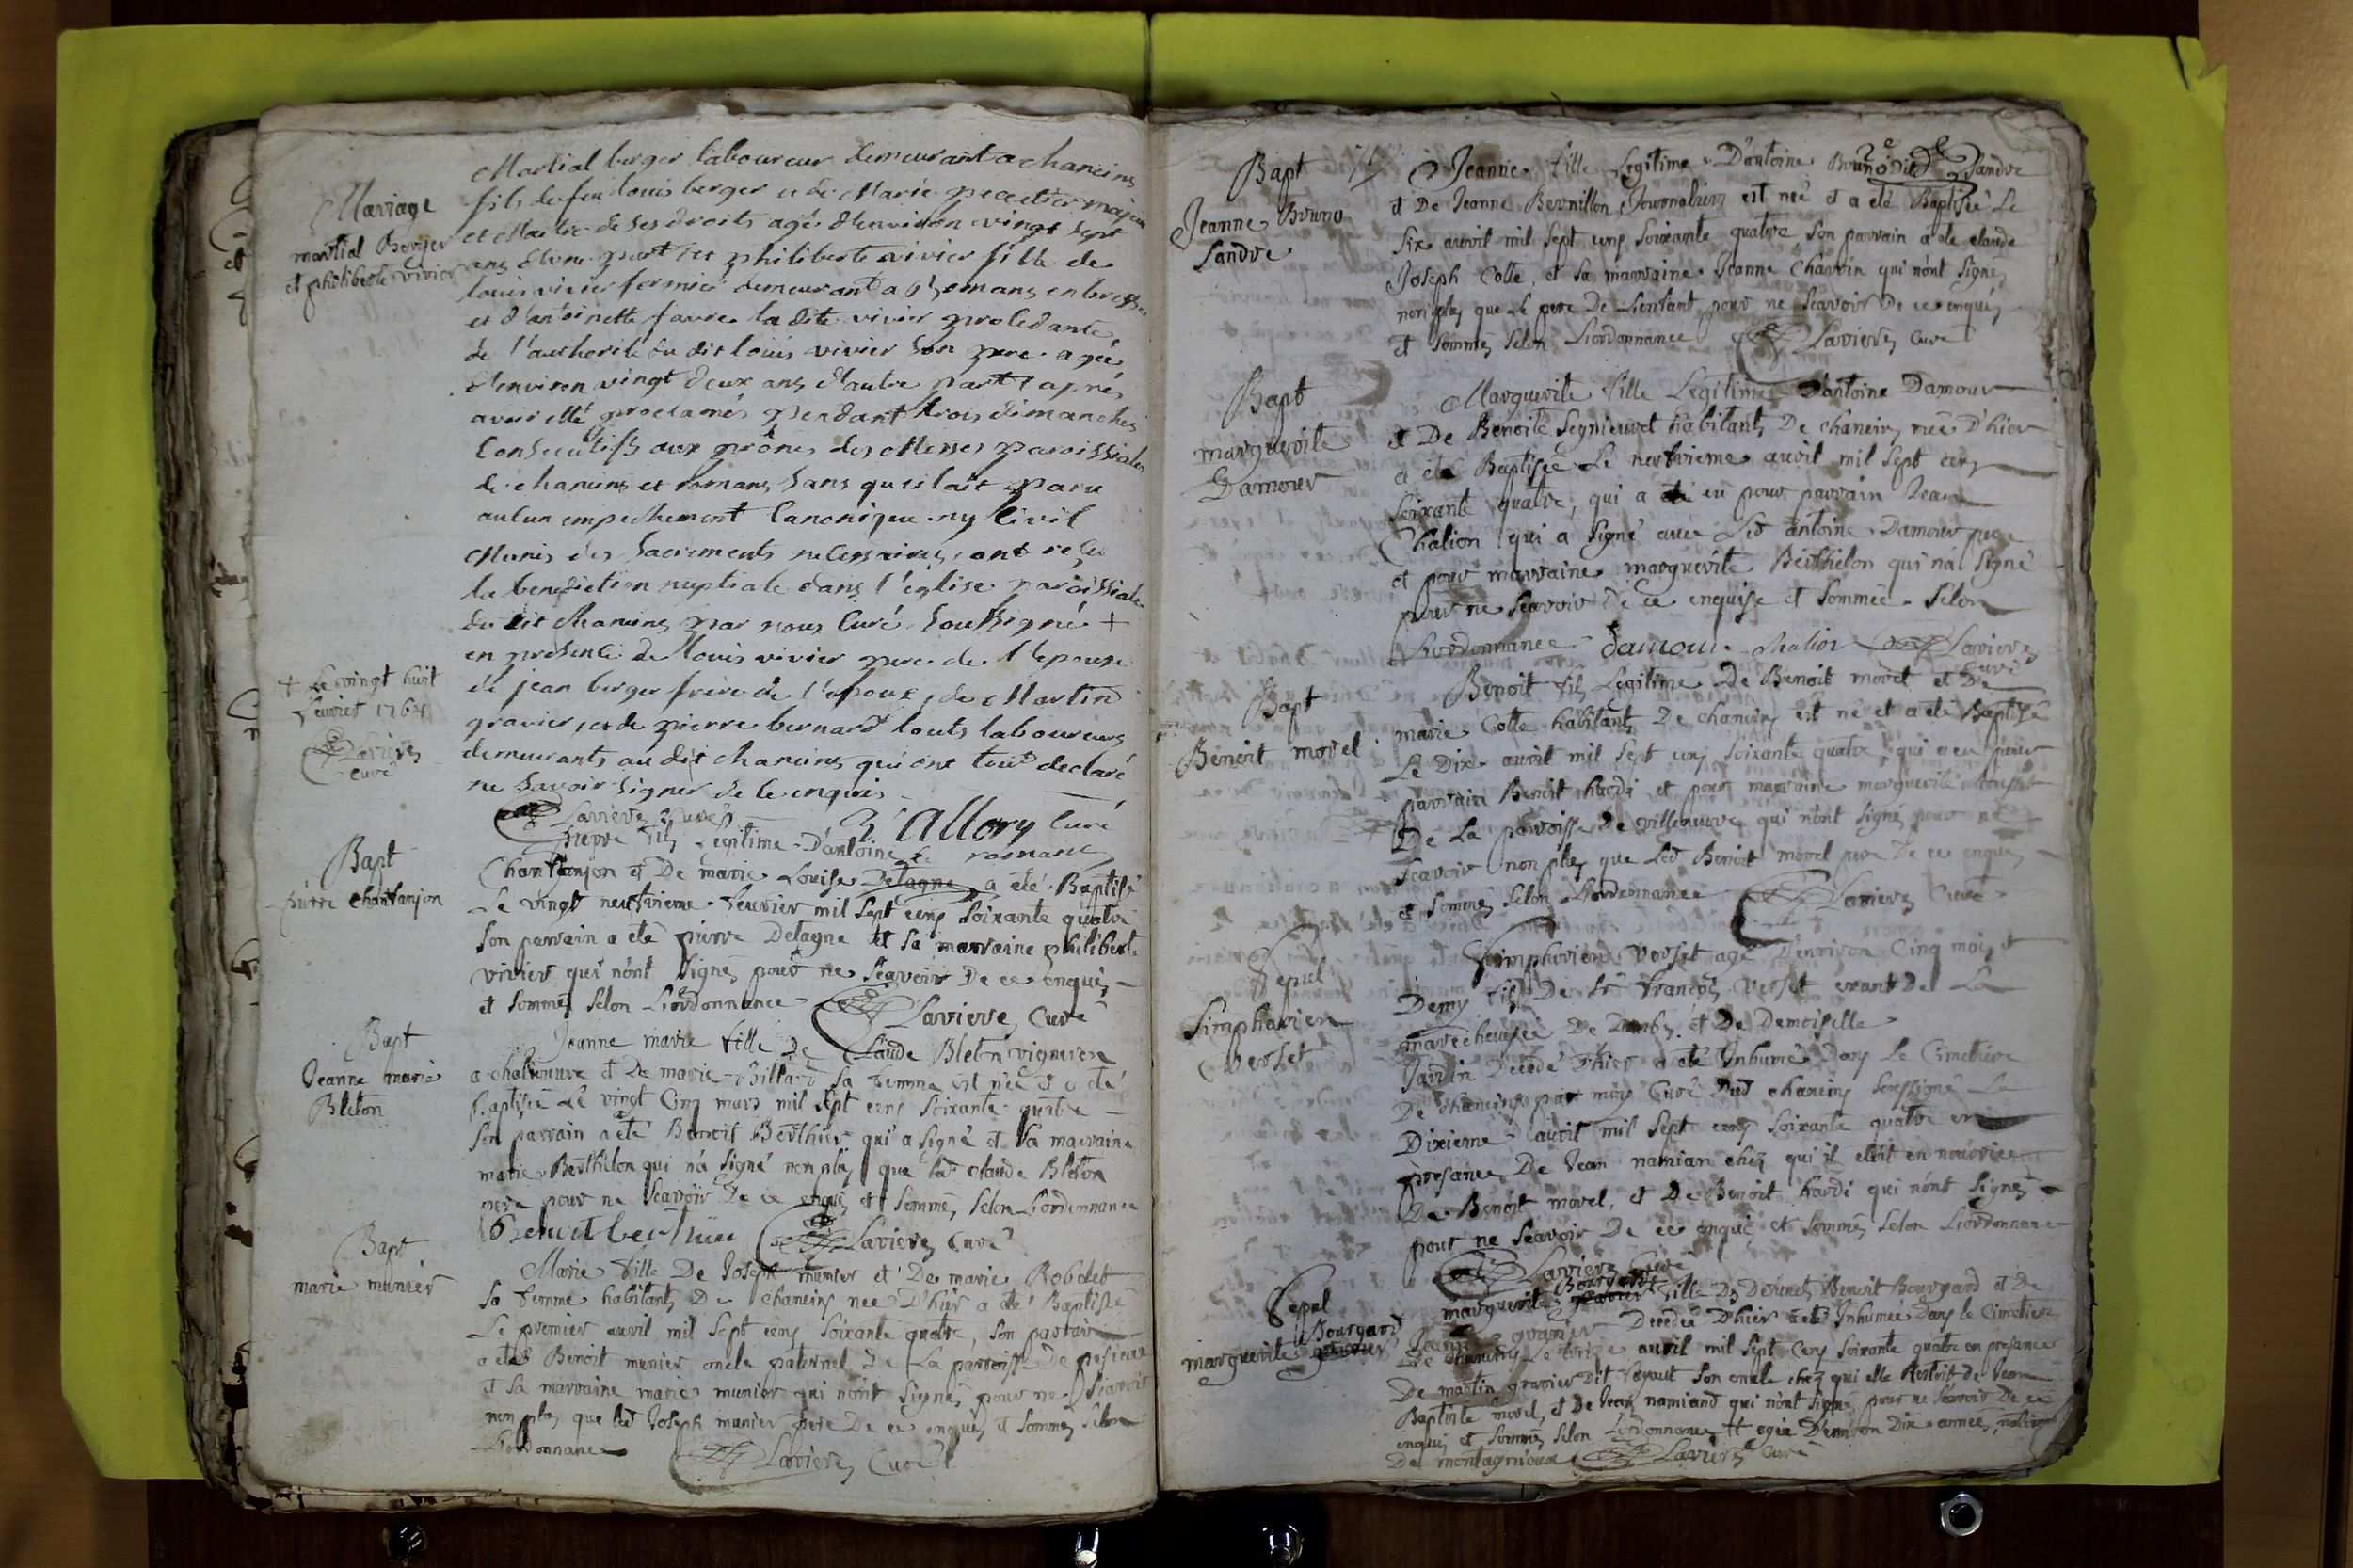 Mariage
martial Berger
et philiberte vivier
Martial berger laboureur demeurant a chaneins
fils de feu louis berger et de Marie majeur
et Maitre de ses droits agé d'environ vingt sept
ans d'une part et philiberte vivier fille de
louis vivier fermier demeurant a Romans en bresse
et d'antoinette favre la dite vivier procedante
de l'authorité du dit louis vivier son pere agée
d'environ vingt deux ans d'autre part apres
avoir etté proclamés pendant trois dimanches
consecutifs aux prônes des Messes paroissiales
de chaneins et romans, sans qu'il ait paru
aucun empechement canonique ny civil
Munis des sacrements necessaires, ont reçu
la benediction nuptiale dans l'eglise paroissiale
du dit chaneins par nous curé soussigné +
en presence de louis vivier pere de l'epouse
de jean berger frere de l'epoux, de Martin
gravier, et de pierre bernard touts laboureurs
demeurants au dit chaneins qui ont tous declaré
ne savoir signer de ce enquis
+ Le vingt huit
feuvrier 1764
Lavieres
curé
Lavieres curé allory curé
de romans
Bapt
pierre chantanjon
pierre fils Legitime D'antoine
Chantanjon et De marie Louise Delagne a été Baptisé
Le vingt neufvieme feuvrier mil sept cens soixante quatre
son parrain a eté pierre Delagne et sa marraine philiberte
vivier qui n'ont signés pour ne sçavoir De ce enquis
et sommés selon L'ordonnance Lavieres Curé
Bapt
Jeanne marie
Bleton
Jeanne marie fille De Claude Bleton vigneron
a chaleneuve et De marie Billard sa femme est née et a eté
Baptisée Le vingt Cinq mars mil sept cens soixante quatre
son parrain a eté Benoit Berthier qui a signé et sa marraine
marie Berthelon qui n'a signé non plus que led claude Bleton
pere pour ne sçavoir De ce enquis et sommés selon L'ordonnance
Benoit berthier Lavieres Curé
Bapt
marie munier
Marie fille De Joseph munier et De marie Robolet
sa femme habitants De chaneins née D'hier a eté Baptisée
Le premier avril mil sept cens soixante quatre, son parrain
a eté Benoit munier oncle paternel De La parroisse De
et sa marraine marie munier qui n'ont signés pour ne sçavoir
non plus que led Joseph munier pere De ce enquis et sommés selon
L'ordonnance Lavieres Curé
Bapt
Jeanne Bruno
Sandre
Jeanne fille Legitime D'antoine Bruno dit Sandre
et De Jeanne Bernillon Journaliers est née et a eté Baptisée Le
six avril mil sept cens soixante quatre, son parrain a eté claude
Joseph Colle, et sa marraine Jeanne Charvin qui n'ont signés
non plus que Le pere De L'enfant pour ne sçavoir De ce enquis
et sommés selon L'ordonnance Lavieres curé
Bapt
marguerite
Damour
Marguerite fille Legitime D'antoine Damour
et De Benoite habitants De chaneins née D'hier
a eté Baptisée Le neufvieme avril mil sept cens
soixante quatre, qui a eu pour parrain Jean
Chalion qui a signé avec Led antoine Damour pere
et pour marraine marguerite Berthelon qui n'a signé
pour ne sçavoir De ce enquise et sommée selon
L'ordonnance damour chalion Lavieres
curé
Bapt
Benoit morel
Benoit fils Legitime De Benoit morel et De
marie Colle habitants De chaneins est né et a eté Baptisé
Le Dix avril mil sept cens soixante quatre, qui a eu pour
parrain Benoit hardi et pour marraine marguerite
De La parroisse De villeneuve qui n'ont signés pour ne
sçavoir non plus que Led Benoit morel pere De ce enquis
et sommés selon L'ordonnance Lavieres Curé
Sepul
Simphorien
Verset
Simphorien Verset agé D'environ Cinq mois et
Demy fils De sr françois Verset exant De La
marechaussée De et De Demoiselle
Jardin Decedé D'hier a eté Inhumé Dans Le Cimetiere
De chaneins par moy Curé Dud chaneins soussigné Le
Dixieme avril mil sept cens soixante quatre en
presence De Jean namian chez qui il etoit en nourrice
De Benoit morel, et De Benoit hardi qui n'ont signés
pour ne sçavoir De ce enquis et sommés selon L'ordonnance
Lavieres Curé
Sepul
Bourgard
marguerite
marguerite Bourgard fille De Defunts Benoit Bourgard et De
Jeanne gravier Decedée D'hier a eté Inhumée Dans le Cimetiere
De chaneins Le treize avril mil sept Cens soixante quatre en presence
De martin gravier Dit son oncle chez qui elle Restoit de Jean
Baptiste morel, et De Jean namiand qui n'ont signés pour ne sçavoir De ce
enquis et sommés selon L'ordonnance # agée D'environ Dix années, native
De montagnieux Lavieres Curé